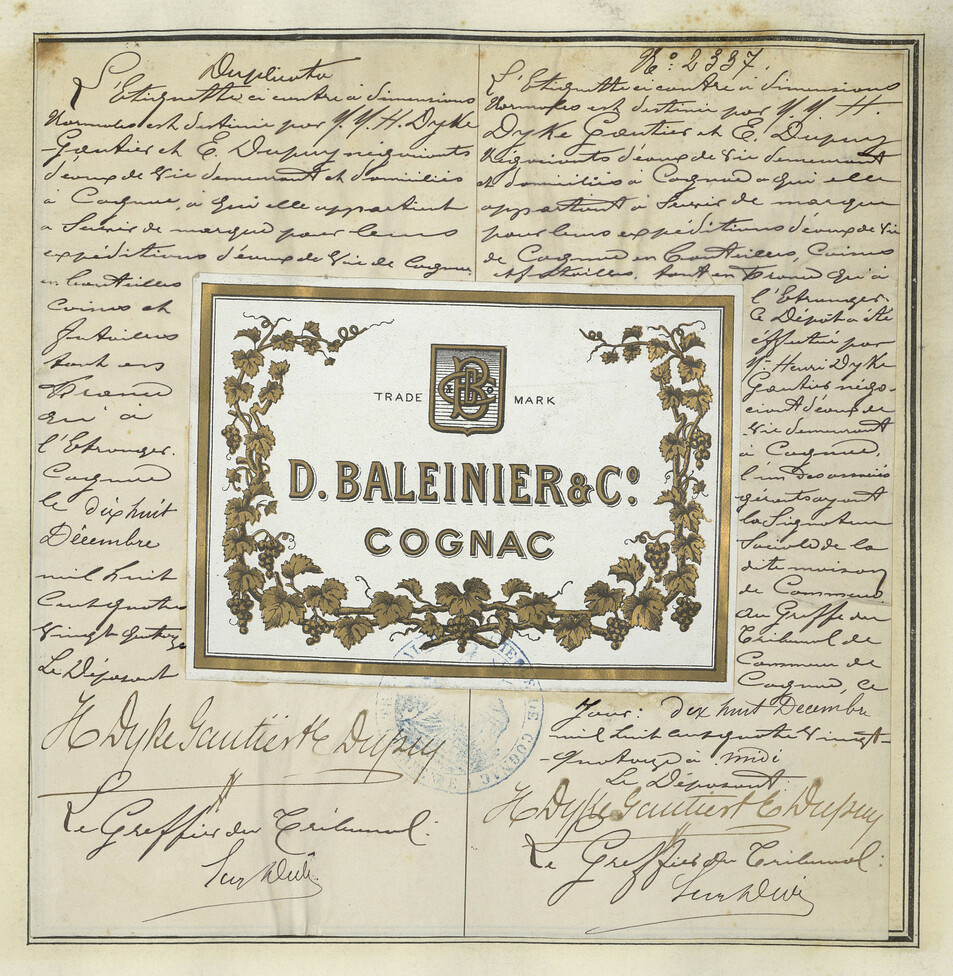 Duplicata
L'Etiquette ci contre à dimensions
Normales est destinée par M.M. H. Dyke
Gautier et E. Dupuy négociants
d'eaux de Vie demeurant et domiciliés
à Cognac, à qui elle appartient
à Servir de marque pour leurs
expéditions d'eaux de Vie de Cognac
en bouteilles
caisses et
futailles
tant en
France
qu'à
l'Etranger.
Cognac
le dix huit
Décembre
mil huit
cent quatre
vingt quatorze
Le Déposant
H Dyke Gautier & E Dupuy
Le Greffier du Tribunal:
No: 2337.
L'Etiquette ci contre à dimensions
Normales est destinée par M.M. H.
Dyke Gautier et E. Dupuy
Négociants d'eaux de Vie demeurant
et domiciliés à Cognac à qui elle
appartient à Servir de marque
pour leurs expéditions d'eaux de Vie
de Cognac en bouteilles, caisses
et futailles, tant en France qu'à
l'Etranger.
Ce Dépôt a été
effectué par
Mr Henri Dyke
Gautier négo-
ciant d'eaux de
Vie demeurant
à Cognac,
l'un des associés
gérants ayant
la Signature
Sociale de la
dite maison
de Commerce
au Greffe du
Tribunal de
Commerce de
Cognac, ce
Jour: dix huit Décembre
mil huit cent quatre vingt-
quatorze à midi
Le Déposant:
H Dyke Gautier & E Dupuy
Le Greffier du Tribunal:
TRADE MARK
D. BALEINIER & Co
COGNAC
DE COGNAC